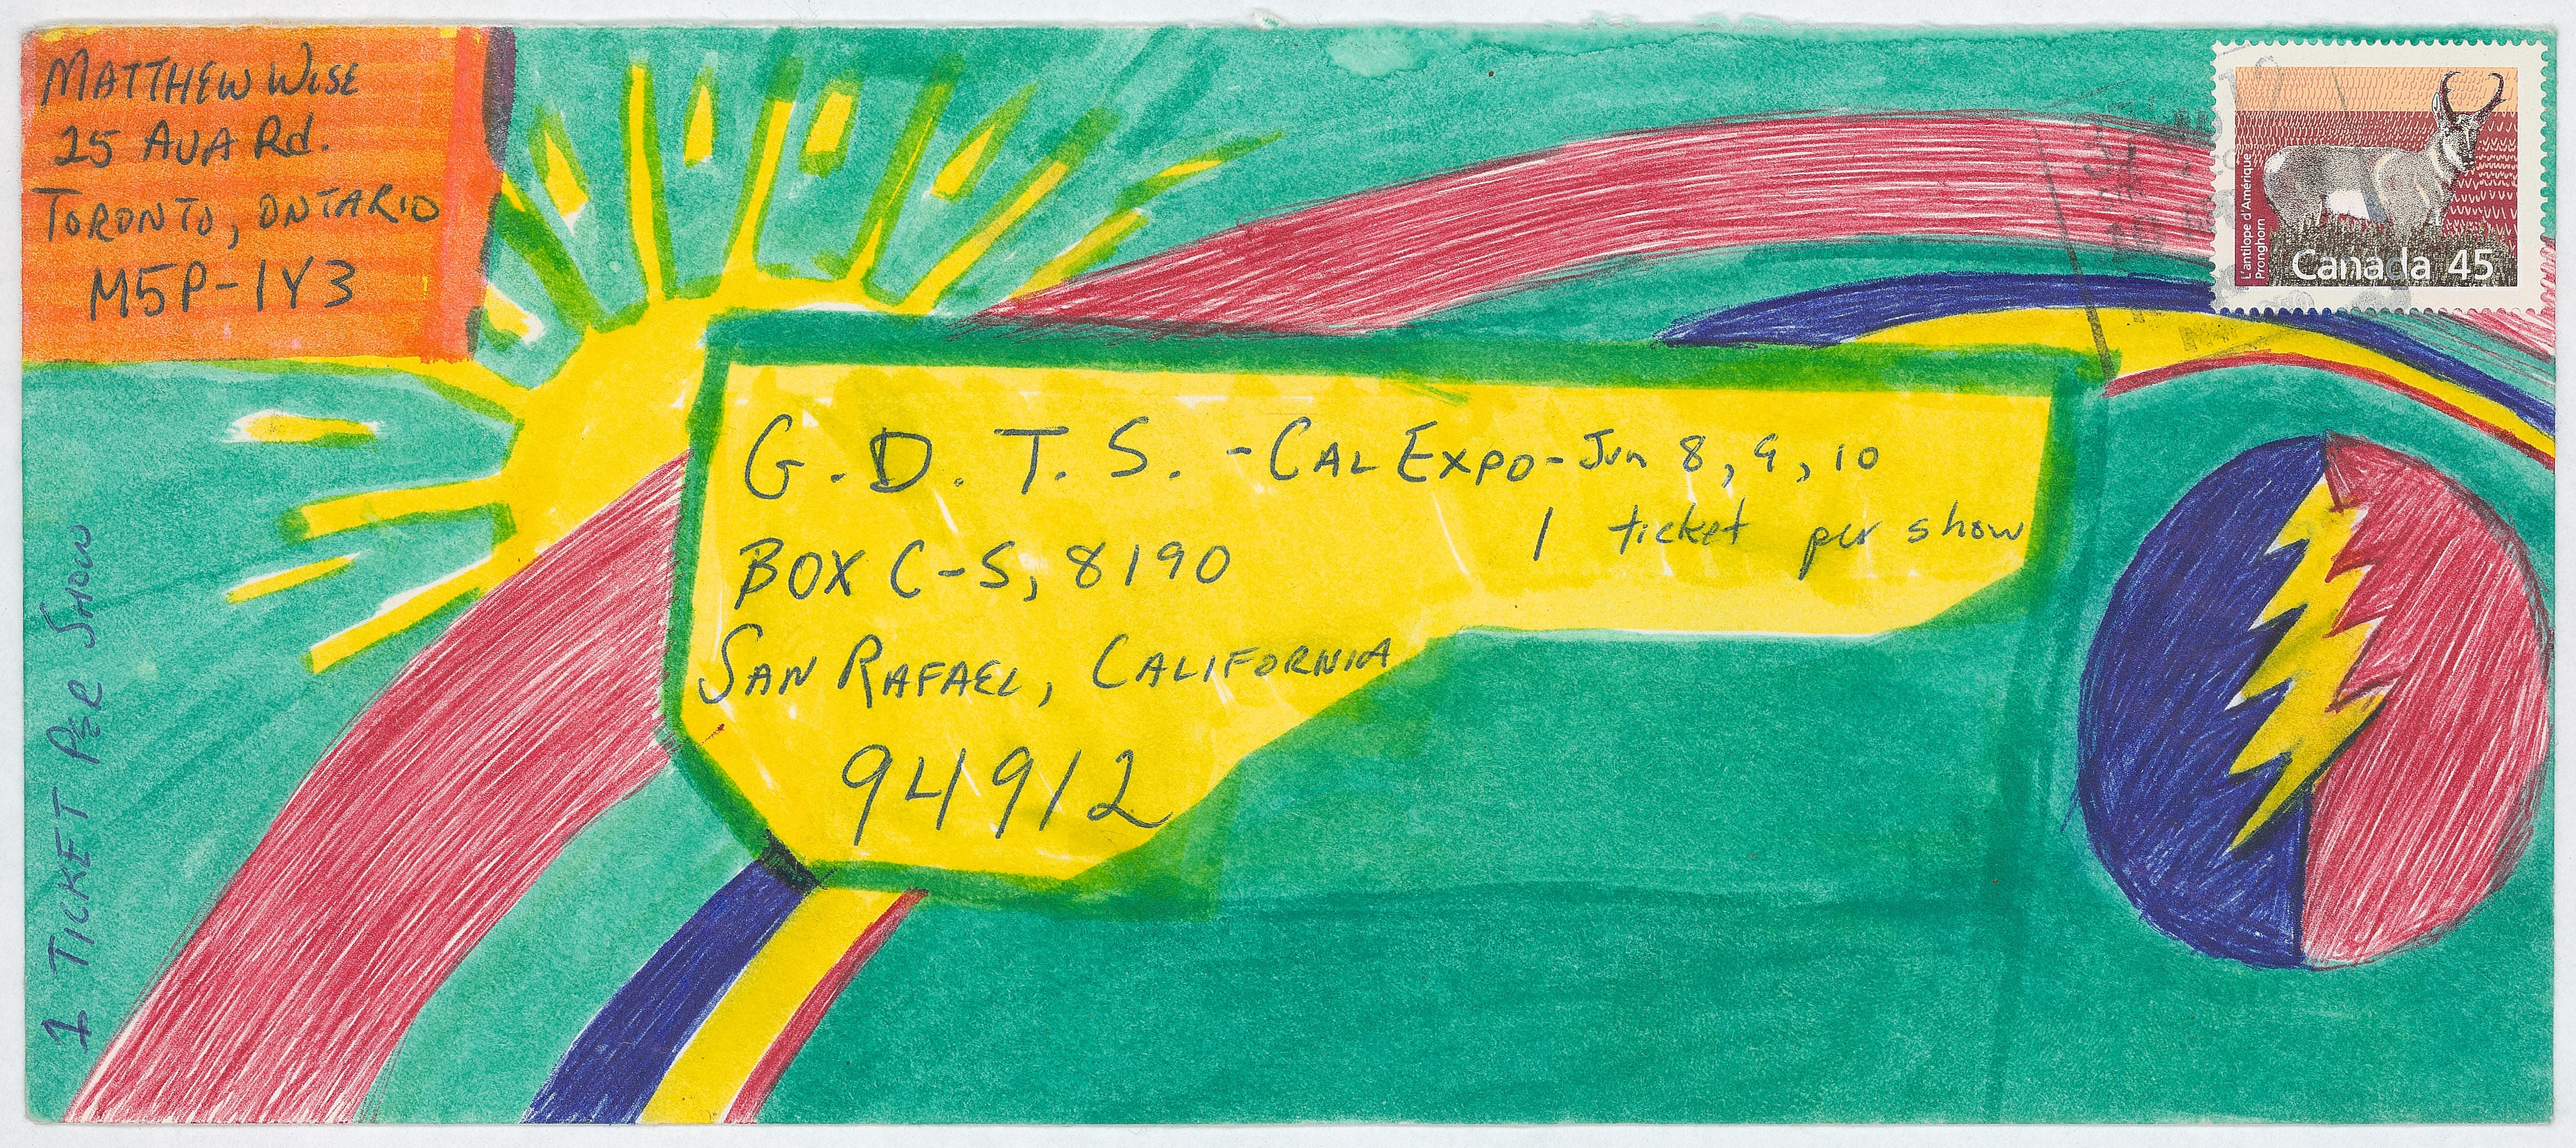 MATTHEW WISE
25 AVA Rd.
TORONTO, ONTARIO
M5P-1Y3
L'antilope d'Amérique
Pronghorn
Canada 45
G.D.T.S. -CAL EXPO-Jun 8, 9, 10
1 ticket per show
BOX C-S, 8190
SAN RAFAEL, CALIFORNIA
94912
1 TICKET PER SHOW